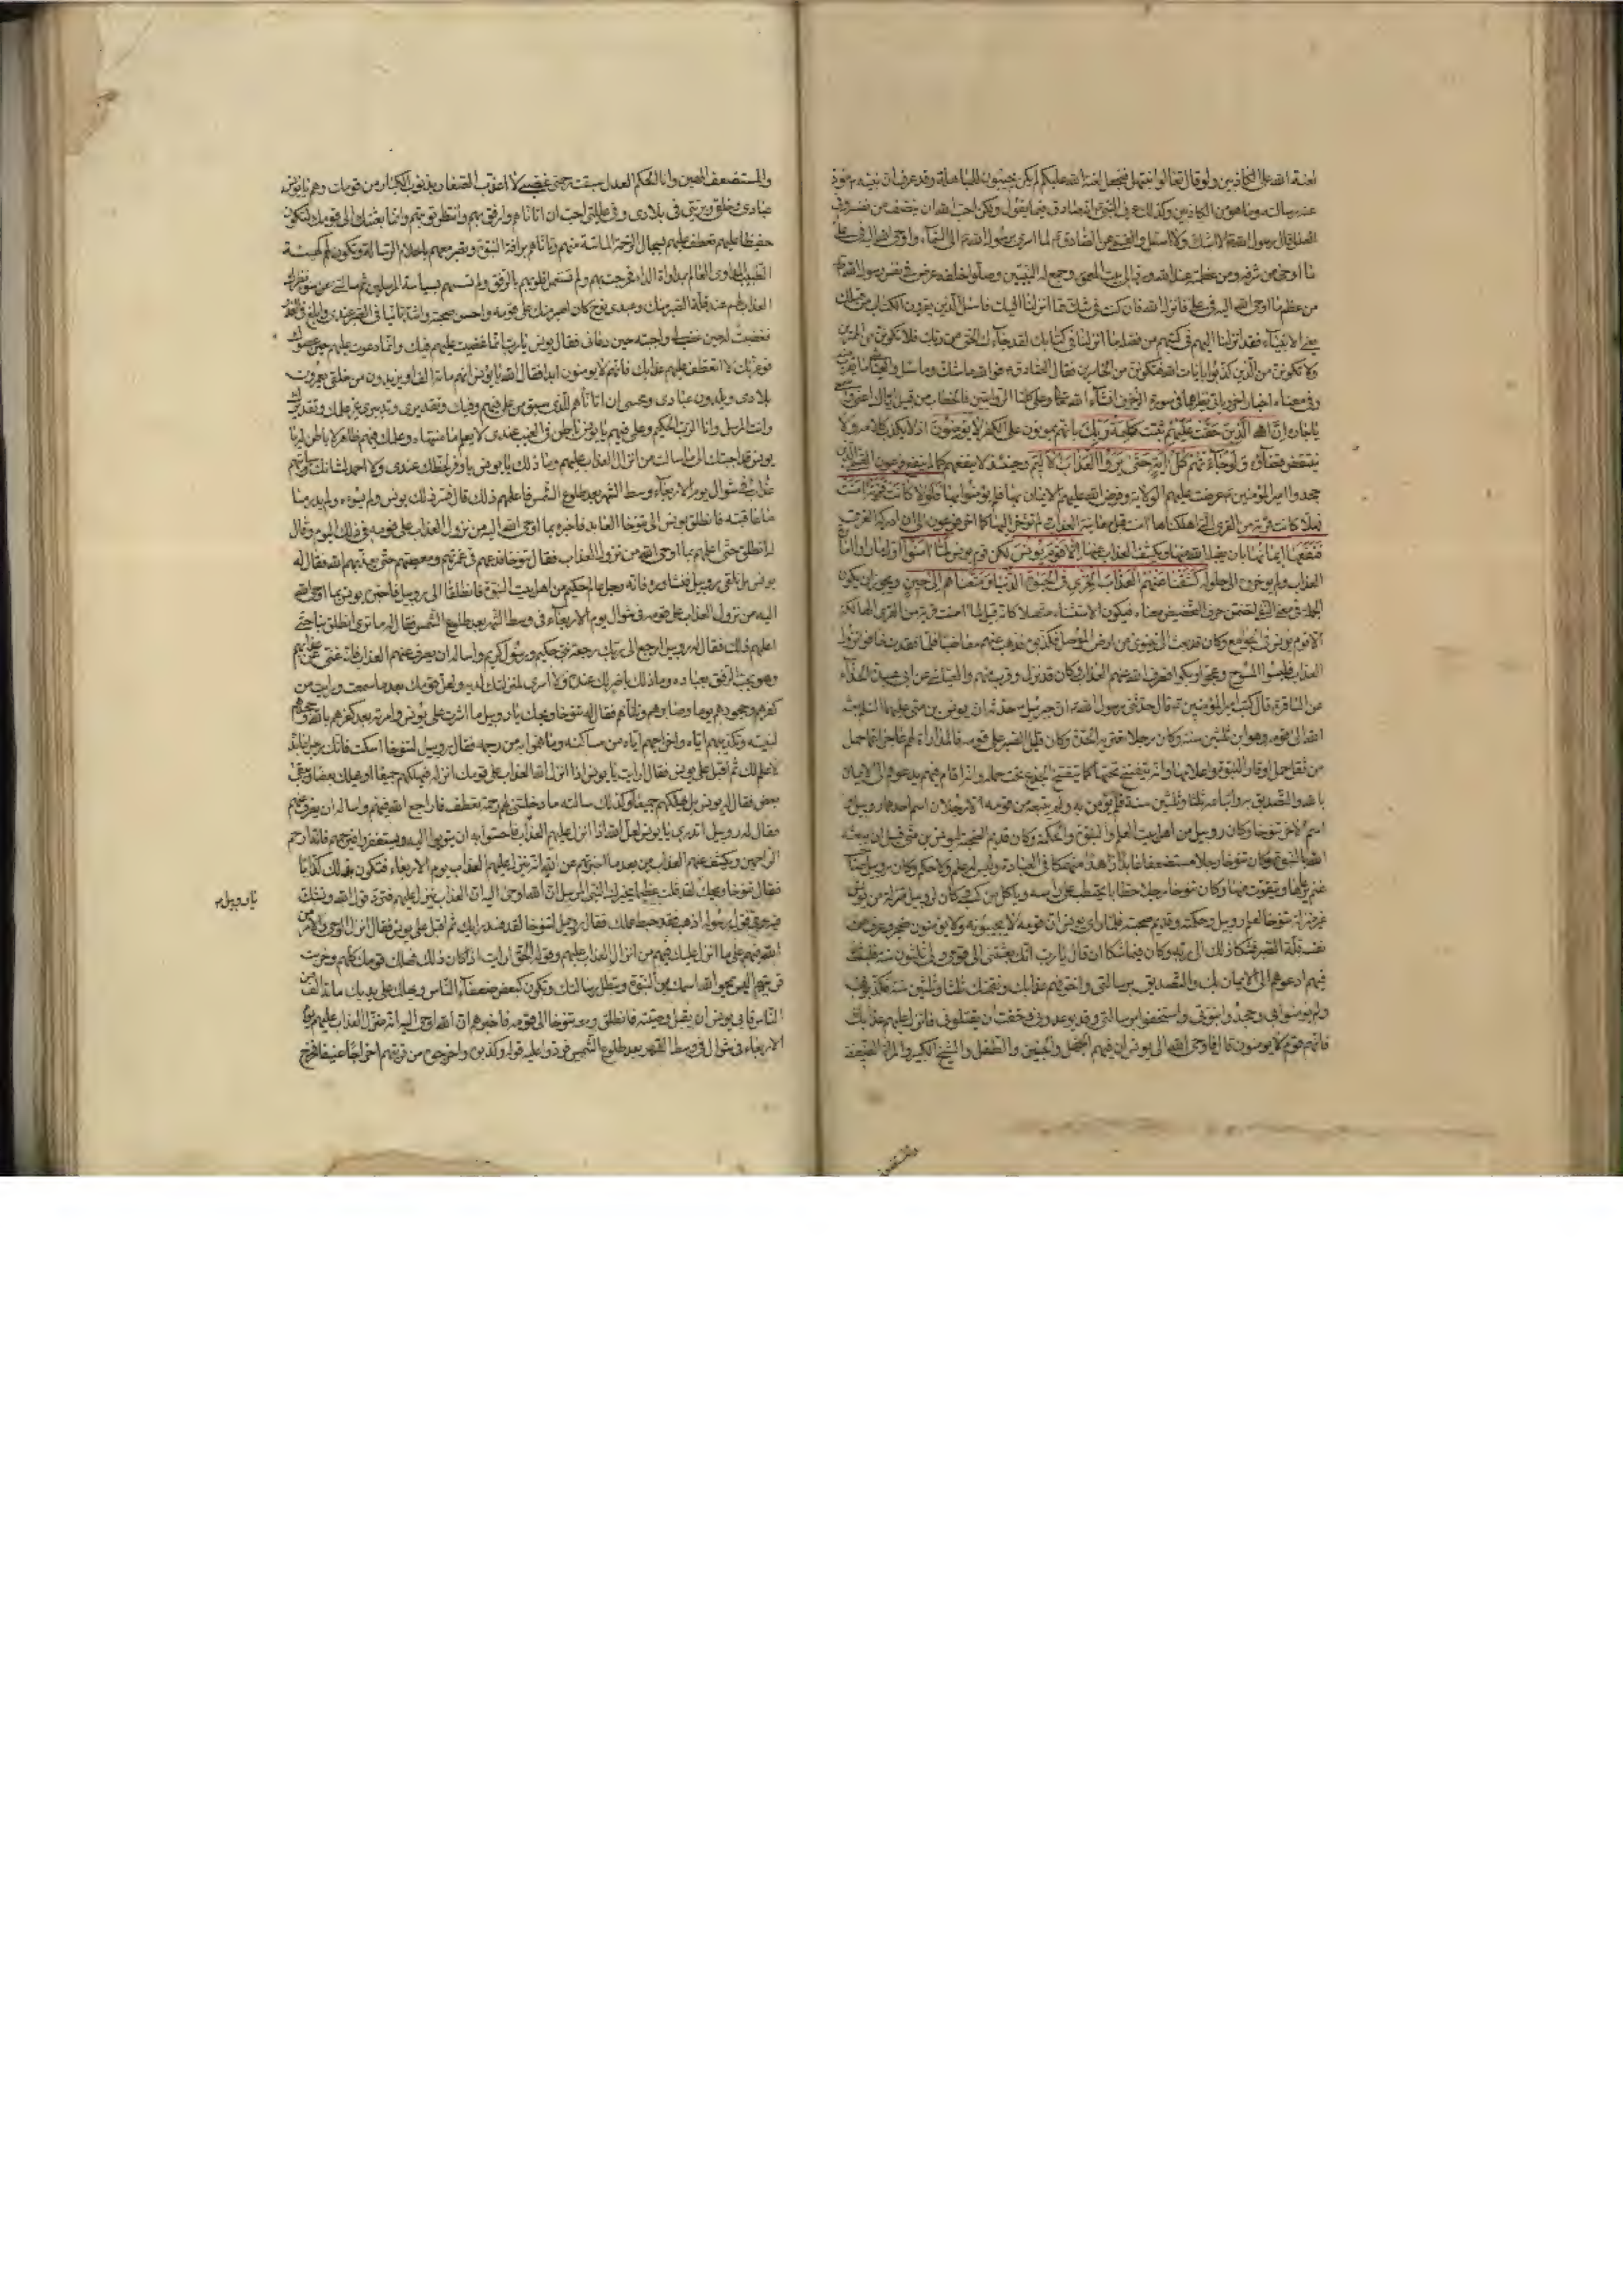 لعنة الله على الكاذبين ولو قال تعالوا نبتهل فنجعل لعنة الله عليكم لم يكن يجيبون للمباهلة وقد عرف ان نبيه مؤد
عنه رسالته وما هو من الكاذبين وكذلك عرف النبي انه صادق فيما يقول ولكن احب ان ينصف من نفسه وفي
قال رسول الله لا اشك ولا اسئل والقمي عن الصادق لما اسري برسول الله الى السماء واوحى الله اليه في علي
ما اوحى من شرفه ومن عظمته عند الله ورد الى البيت المعمور وجمع له النبيين وصلوا خلفه عرض في نفس رسول الله
من عظم ما اوحى الله اليه في علي فانزل الله فان كنت في شك مما انزلنا اليك فاسئل الذين يقرؤن الكتاب من قبلك
يعني الانبياء فقد انزلنا اليهم في كتبهم من فضله ما انزلنا في كتابك لقد جاءك الحق من ربك فلا تكونن من الممترين
ولا تكونن من الذين كذبوا بايات الله فتكون من الخاسرين فقال الصادق فوالله ما شك وما سئل
وفي معناه اخبار اخر وياتي نظيرها في سورة الزخرف انشاء الله وعلى كلتا الروايتين فالخطاب من قبيل اياك اعني واسمعي
يا جاره ان الذين حقت عليهم ثبتت كلمة ربك بانهم يموتون على الكفر لا يؤمنون اذ لا يكذب كلامه ولا
ينتقض قضاؤه ولو جاءتهم كل اية حتى يروا العذاب الاليم وحينئذ لا ينفعهم كما لم ينفع فرعون القمي الذين
جحدوا امير المؤمنين عرضت عليهم الولاية وفرض الله عليهم الايمان بها فلم يؤمنوا بها فلولا كانت قرية امنت
فهلا كانت قرية من القرى التي اهلكناها امنت قبل معاينة العذاب لم تؤخر اليها كما اخر فرعون الى ان ادركه الغرق
فنفعها ايمانها بان يقبله الله منها ويكشف العذاب عنها الا قوم يونس لكن قوم يونس لما امنوا اول ما راوا امارة
العذاب ولم يؤخروه الى حلوله كشفنا عنهم عذاب الخزي في الحيوة الدنيا ومتعناهم الى حين ويجوز ان يكون
الجملة في معنى النفي لتضمن حرف التحضيض معناه فيكون الاستثناء متصلا كانه قيل ما امنت قرية من القرى الهالكة
الا قوم يونس في الجوامع وكان قد بعث الى نينوى من ارض الموصل فكذبوه فذهب عنهم مغاضبا فلما فقدوه خافوا نزول
العذاب فلبسوا المسوح وعجوا وبكوا فصرف الله عنهم العذاب وكان قد نزل وقرب منهم والعياشي عن ابي عبيدة الحذاء
عن الباقر قال كتب امير المؤمنين قال حدثني رسول الله ان جبرئيل حدثه ان يونس بن متى عليهما السلام بعثه
الله الى قومه وهو ابن ثلثين سنة وكان رجلا تعتريه الحدة وكان قليل الصبر على قومه والمداراة لهم عاجزا عما حمل
من ثقل حمل اوقار النبوة واعلامها وانه تفسخ تحتها كما يتفسخ الجذع تحت حمله وانه اقام فيهم يدعوهم الى الايمان
بالله والتصديق به واتباعه ثلثا وثلثين سنة فلم يؤمن به ولم يتبعه من قومه الا رجلان اسم احدهما روبيل
اسم الاخر تنوخا وكان روبيل من اهل بيت العلم والنبوة والحكمة وكان قديم الصحبة ليونس بن متى قبل ان يبعثه
الله بالنبوة وكان تنوخا رجلا مستضعفا عابدا زاهدا منهمكا في العبادة وليس له علم ولا حكم وكان روبيل صاحب
غنم يرعاها ويتقوت منها وكان تنوخا رجلا حطابا يحتطب على راسه وياكل من كسبه وكان لروبيل منزلة من يونس
غير منزلة تنوخا لعلم روبيل وحكمته وقديم صحبته فلما راى يونس ان قومه لا يجيبونه ولا يؤمنون ضجر وعرف من
نفسه قلة الصبر فشكا ذلك الى ربه وكان فيما شكا ان قال يا رب انك بعثتني الى قومي ولي ثلثون سنة فلبثت
فيهم ادعوهم الى الايمان بك والتصديق برسالتي واخوفهم عذابك ونقمتك ثلثا وثلثين سنة فكذبوني
ولم يؤمنوا بي وجحدوا نبوتي واستخفوا برسالتي وقد توعدوني وخفت ان يقتلوني فانزل عليهم عذابك
فانهم قوم لا يؤمنون قال فاوحى الله الى يونس ان فيهم الحمل والجنين والطفل والشيخ الكبير والمراة الضعيفة
والمستضعف المهين وانا الحكم العدل سبقت رحمتي غضبي لا اعذب الصغار بذنوب الكبار من قومك وهم يا يونس
عبادي وخلقي وبريتي في بلادي وفي عيلتي احب ان اتاناهم وارفق بهم وانتظر توبتهم وانما بعثتك الى قومك لتكون
حفيظا عليهم تعطف عليهم بسجال الرحمة الماسة منهم وتاناهم برافة النبوة وتصبر معهم باحلام الرسالة وتكون لهم كهيئة
الطبيب المداوي العالم بمداواة الداء فخرجت بهم ولم تستعمل قلوبهم بالرفق ولم تسسهم بسياسة المرسلين ثم سالتني عن سوء نظرك
العذاب لهم عند قلة الصبر منك وعبدي نوح كان اصبر منك على قومه واحسن صحبة واشد تانيا في الصبر عندي وابلغ في العذر
فغضبت له حين غضب لي واجبته حين دعاني فقال يونس يا رب انما غضبت عليهم فيك وانما دعوت عليهم حين عصوك
فوعزتك لا اتعطف عليهم فانهم لا يؤمنون ابدا فقال الله يا يونس انهم مائة الف او يزيدون من خلقي يعمرون
بلادي ويلدون عبادي ومحبتي ان اتاناهم للذي سبق من علمي فيهم وفيك وتقديري وتدبيري غير علمك وتقديرك
وانت المرسل وانا الرب الحكيم وعلمي فيهم يا يونس باطن في الغيب عندي لا يعلم ما منتهاه وعلمك فيهم ظاهر لا باطن له يا
يونس قد اجبتك الى ما سالت من انزال العذاب عليهم وما ذلك يا يونس باوفر لحظك عندي ولا احمد لشانك وسياتيهم
عذاب في شوال يوم الاربعاء وسط الشهر بعد طلوع الشمس فاعلمهم ذلك قال فسر ذلك يونس ولم يسوءه ولم يدر ما
عاقبته فانطلق يونس الى تنوخا العابد فاخبره بما اوحى الله اليه من نزول العذاب على قومه في ذلك اليوم وقال
له انطلق حتى اعلمهم بما اوحى الله من نزول العذاب فقال تنوخا فدعهم في غمرتهم ومعصيتهم حتى يعذبهم الله فقال له
يونس بل نلقى روبيل فنشاوره فانه رجل عالم حكيم من اهل بيت النبوة فانطلقا الى روبيل فاخبره يونس بما اوحى الله
اليه من نزول العذاب على قومه في شوال يوم الاربعاء في وسط الشهر بعد طلوع الشمس فقال له ما ترى انطلق بنا حتى
اعلمهم ذلك فقال له روبيل ارجع الى ربك رجعة نبي حكيم ورسول كريم واساله ان يصرف عنهم العذاب فانه غني عن عذابهم
وهو يحب الرفق بعباده وما ذلك باضر لك عنده ولا اسرى لمنزلتك لديه ولعل قومك بعد ما سمعت ورايت من
كفرهم وجحودهم يوما فصابرهم وتاناهم فقال له تنوخا ويحك يا روبيل ما اشرت على يونس وامرته بعد كفرهم بالله وجحدهم
لنبيه وتكذيبهم اياه واخراجهم اياه من مساكنه وما هموا به من رجمه فقال روبيل لتنوخا اسكت فانك رجل عابد
لا علم لك ثم اقبل على يونس فقال ارايت يا يونس اذا انزل الله العذاب على قومك انزله فيهلكهم جميعا او يهلك بعضا ويبقي
بعض فقال له يونس بل يهلكهم جميعا وكذلك سالته ما دخلتني لهم رحمة تعطف فاراجع الله فيهم واساله ان يصرف عنهم
فقال له روبيل اتدري يا يونس لعل الله اذا انزل عليهم العذاب فاحسوا به ان يتوبوا اليه ويستغفروا فيرحمهم فانه ارحم
الراحمين ويكشف عنهم العذاب من بعد ما اخبرتهم عن الله انه ينزل عليهم العذاب يوم الاربعاء فتكون بذلك كذابا
فقال تنوخا ويحك يا روبيل لقد قلت عظيما يخبرك النبي المرسل ان الله اوحى اليه ان العذاب ينزل عليهم فترد قول الله وتشك
فيه وفي قول رسوله اذهب فقد حبط عملك فقال روبيل لتنوخا لقد فسد رايك ثم اقبل على يونس فقال انزل الوحي والامر من
الله فيهم على ما انزل عليك فيهم من انزال العذاب عليهم وقوله الحق ارايت اذا كان ذلك فهلك قومك كلهم وخربت
قريتهم اليس يمحو الله اسمك من النبوة وتبطل رسالتك وتكون كبعض ضعفاء الناس ويهلك على يديك مائة الف من
الناس فابى يونس ان يقبل وصيته فانطلق ومعه تنوخا الى قومه فاخبرهم ان الله اوحى اليه انه منزل العذاب عليهم يوم
الاربعاء في شوال في وسط الشهر بعد طلوع الشمس فردوا عليه قوله وكذبوه واخرجوه من قريتهم اخراجا عنيفا فخرج
يا روبيل
والمستضعف